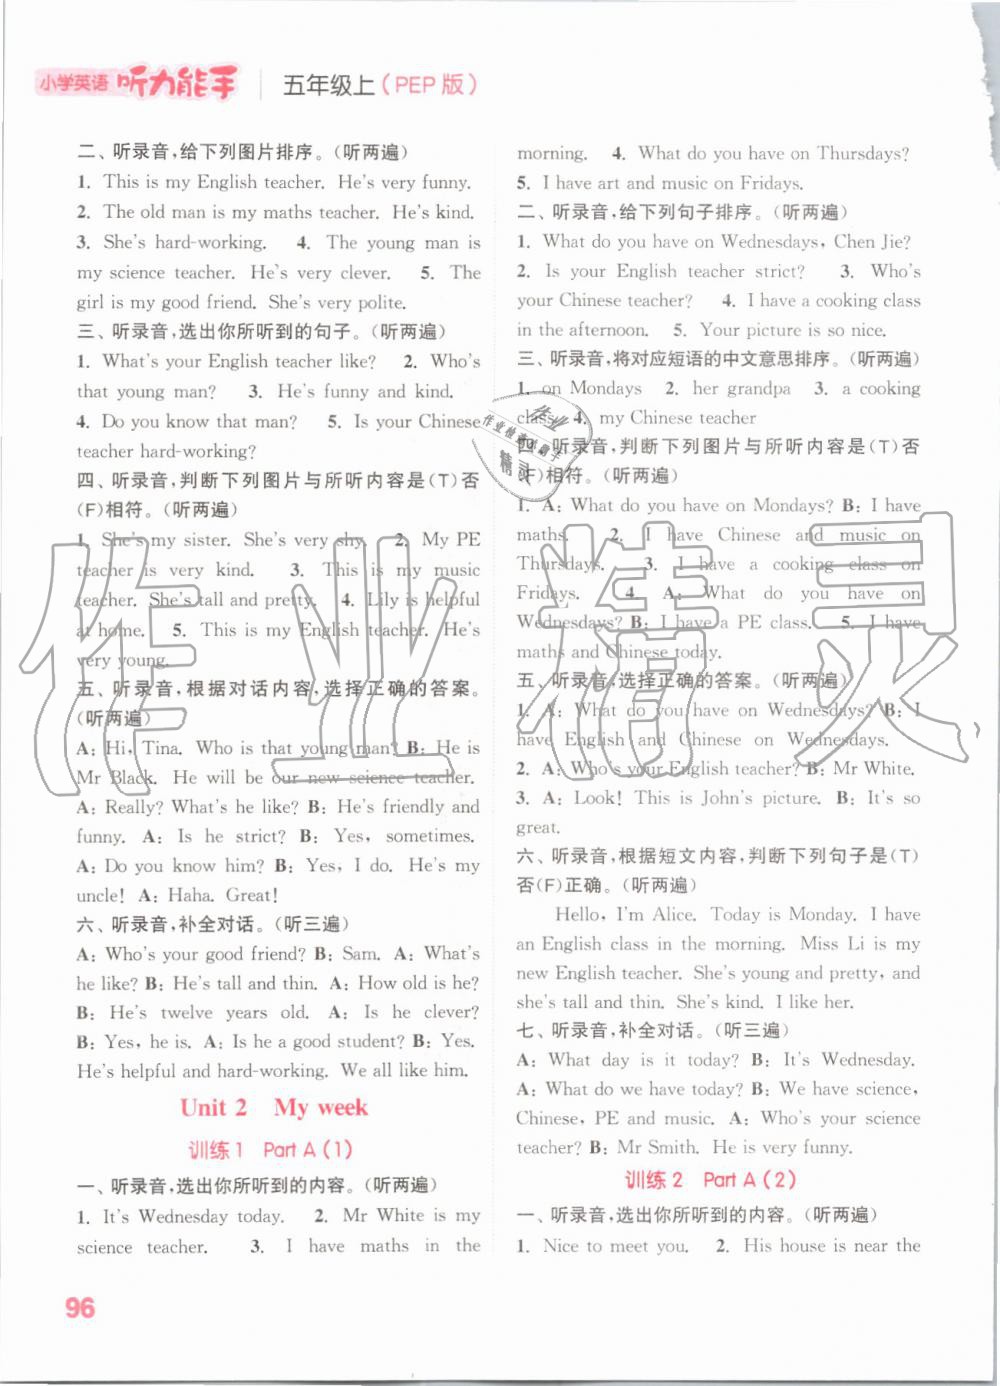 小学英语 听力能手 五年级上(PEP 版)
二、听录音,给下列图片排序。(听两遍)
1. This is my English teacher. He's very funny.
2. The old man is my maths teacher. He's kind.
3. She's hard-working. 4. The young man is
my science teacher. He's very clever. 5. The
girl is my good friend. She's very polite.
三、听录音,选出你所听到的句子。(听两遍)
1. What's your English teacher like? 2. Who's
that young man? 3. He's funny and kind.
4. Do you know that man? 5. Is your Chinese
teacher hard-working?
四、听录音,判断下列图片与所听内容是(T)否
(F)相符。(听两遍)
1. She's my sister. She's very shy. 2. My PE
teacher is very kind. 3. This is my music
teacher. She's tall and pretty. 4. Lily is helpful
at home. 5. This is my English teacher. He's
very young.
五、听录音,根据对话内容,选择正确的答案。
(听两遍)
A: Hi, Tina. Who is that young man? B: He is
Mr Black. He will be our new science teacher.
A: Really? What's he like? B: He's friendly and
funny. A: Is he strict? B: Yes, sometimes.
A: Do you know him? B: Yes, I do. He's my
uncle! A: Haha. Great!
六、听录音,补全对话。(听三遍)
A: Who's your good friend? B: Sam. A: What's
he like? B: He's tall and thin. A: How old is he?
B: He's twelve years old. A: Is he clever?
B: Yes, he is. A: Is he a good student? B: Yes.
He's helpful and hard-working. We all like him.
Unit 2 My week
训练1 Part A (1)
一、听录音,选出你所听到的内容。(听两遍)
1. It's Wednesday today. 2. Mr White is my
science teacher. 3. I have maths in the
morning. 4. What do you have on Thursdays?
5. I have art and music on Fridays.
二、听录音,给下列句子排序。(听两遍)
1. What do you have on Wednesdays, Chen Jie?
2. Is your English teacher strict? 3. Who's
your Chinese teacher? 4. I have a cooking class
in the afternoon. 5. Your picture is so nice.
三、听录音,将对应短语的中文意思排序。(听两遍)
1. on Mondays 2. her grandpa 3. a cooking
class 4. my Chinese teacher
四、听录音,判断下列图片与所听内容是(T)否
(F)相符。(听两遍)
1. A: What do you have on Mondays? B: I have
maths. 2. I have Chinese and music on
Thursdays. 3. I have a cooking class on
Fridays. 4. A: What do you have on
Wednesdays? B: I have a PE class. 5. I have
maths and Chinese today.
五、听录音,选择正确的答案。(听两遍)
1. A: What do you have on Wednesdays? B: I
have English and Chinese on Wednesdays.
2. A: Who's your English teacher? B: Mr White.
3. A: Look! This is John's picture. B: It's so
great.
六、听录音,根据短文内容,判断下列句子是(T)
否(F)正确。(听两遍)
Hello, I'm Alice. Today is Monday. I have
an English class in the morning. Miss Li is my
new English teacher. She's young and pretty, and
she's tall and thin. She's kind. I like her.
七、听录音,补全对话。(听三遍)
A: What day is it today? B: It's Wednesday.
A: What do we have today? B: We have science,
Chinese, PE and music. A: Who's your science
teacher? B: Mr Smith. He is very funny.
训练2 Part A (2)
一、听录音,选出你所听到的内容。(听两遍)
1. Nice to meet you. 2. His house is near the
96
作业精灵